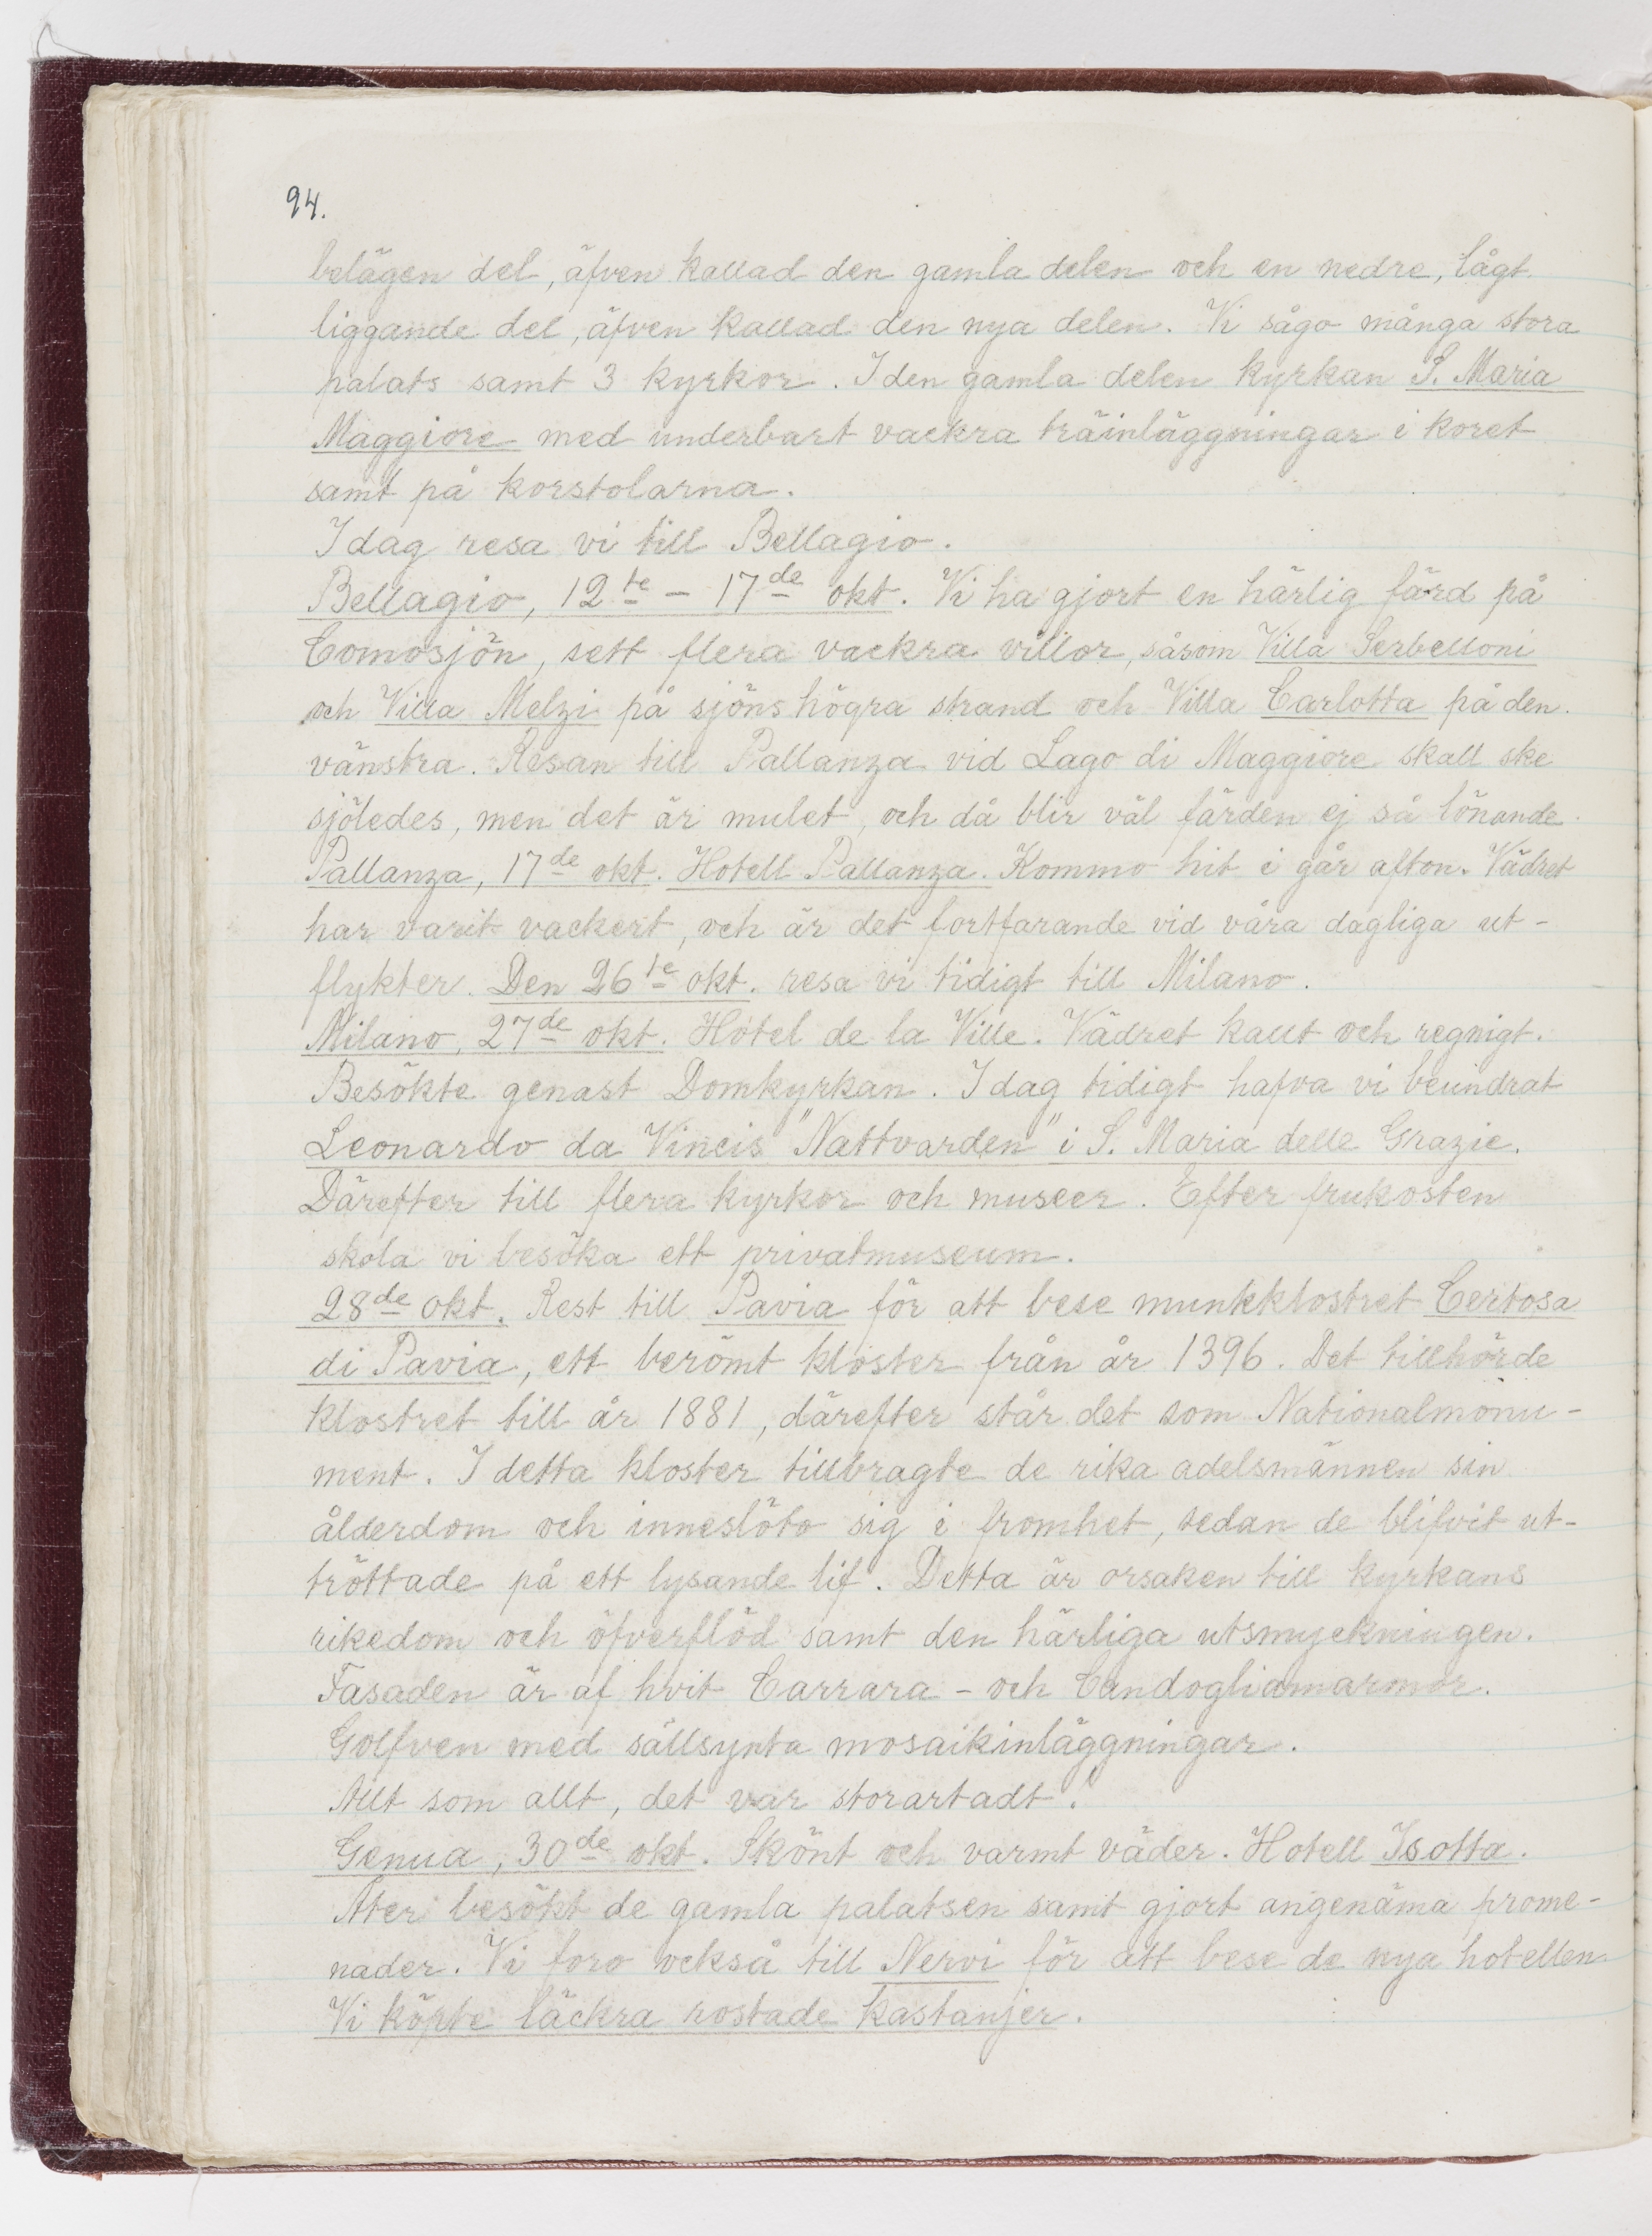 94.
belägen del, äfven kallad den gamla delen och en nedre, lågt
liggande del, äfven kallad den nya delen. Vi sågo många stora
palats samt 3 kyrkor. I den gamla delen kyrkan S. Maria
Maggiore med underbart vackra träinläggningar i koret
samt på korstolarna.
I dag resa vi till Bellagio.
Bellagio, 12te - 17de okt. Vi ha gjort en härlig färd på
Comosjön, sett flera vackra villor, såsom Villa Serbelloni
och Villa Melzi på sjöns högra strand och Villa Carlotta på den
vänstra. Resan till Pallanza vid Lago di Maggiore skall ske
sjöledes, men det är mulet, och då blir väl färden ej så lönande.
Pallanza, 17de okt. Hotell Pallanza. Kommo hit i går afton. Vädret
har varit vackert, och är det fortfarande vid våra dagliga ut-
flykter. Den 26te okt. resa vi tidigt till Milano.
Milano, 27de okt. Hôtel de la Ville. Vädret kallt och regnigt.
Besökte genast Domkyrkan. I dag tidigt hafva vi beundrat
Leonardo da Vincis "Nattvarden" i S. Maria delle Grazie.
Därefter till flera kyrkor och museer. Efter frukosten
skola vi besöka ett privatmuseum.
28de okt. Rest till Pavia för att bese munkklostret Certosa
di Pavia, ett berömt kloster från år 1396. Det tillhörde
klostret till år 1881, därefter står det som Nationalmonu-
ment. I detta kloster tillbragte de rika adelsmännen sin
ålderdom och inneslöto sig i fromhet, sedan de blifvit ut-
tröttade på ett lysande lif. Detta är orsaken till kyrkans
rikedom och öfverflöd samt den härliga utsmyckningen.
Fasaden är af hvit Carrara - och Candogliamarmor.
Golfven med sällsynta mosaikinläggningar.
Allt som allt, det var storartadt!
Genua, 30de okt. Skönt och varmt väder. Hotell Isotta.
Åter besökt de gamla palatsen samt gjort angenäma prome-
nader. Vi foro också till Nervi för att bese de nya hotellen.
Vi köpte läckra rostade kastanjer.